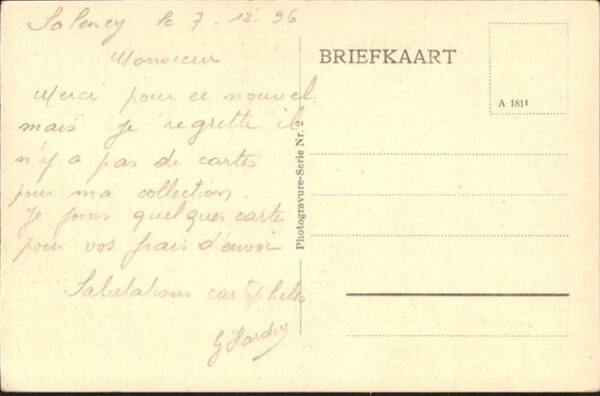 Salency le 7. 12. 96
Monsieur
Merci pour ce nouvel
mais je regrette il
n'y a pas de cartes
pour ma collection.
Je joins quelques cartes
pour vos frais d'envoi
Salutations cartophiles
G Hardy
BRIEFKAART
A 1811
Photogravure-Serie Nr. 2